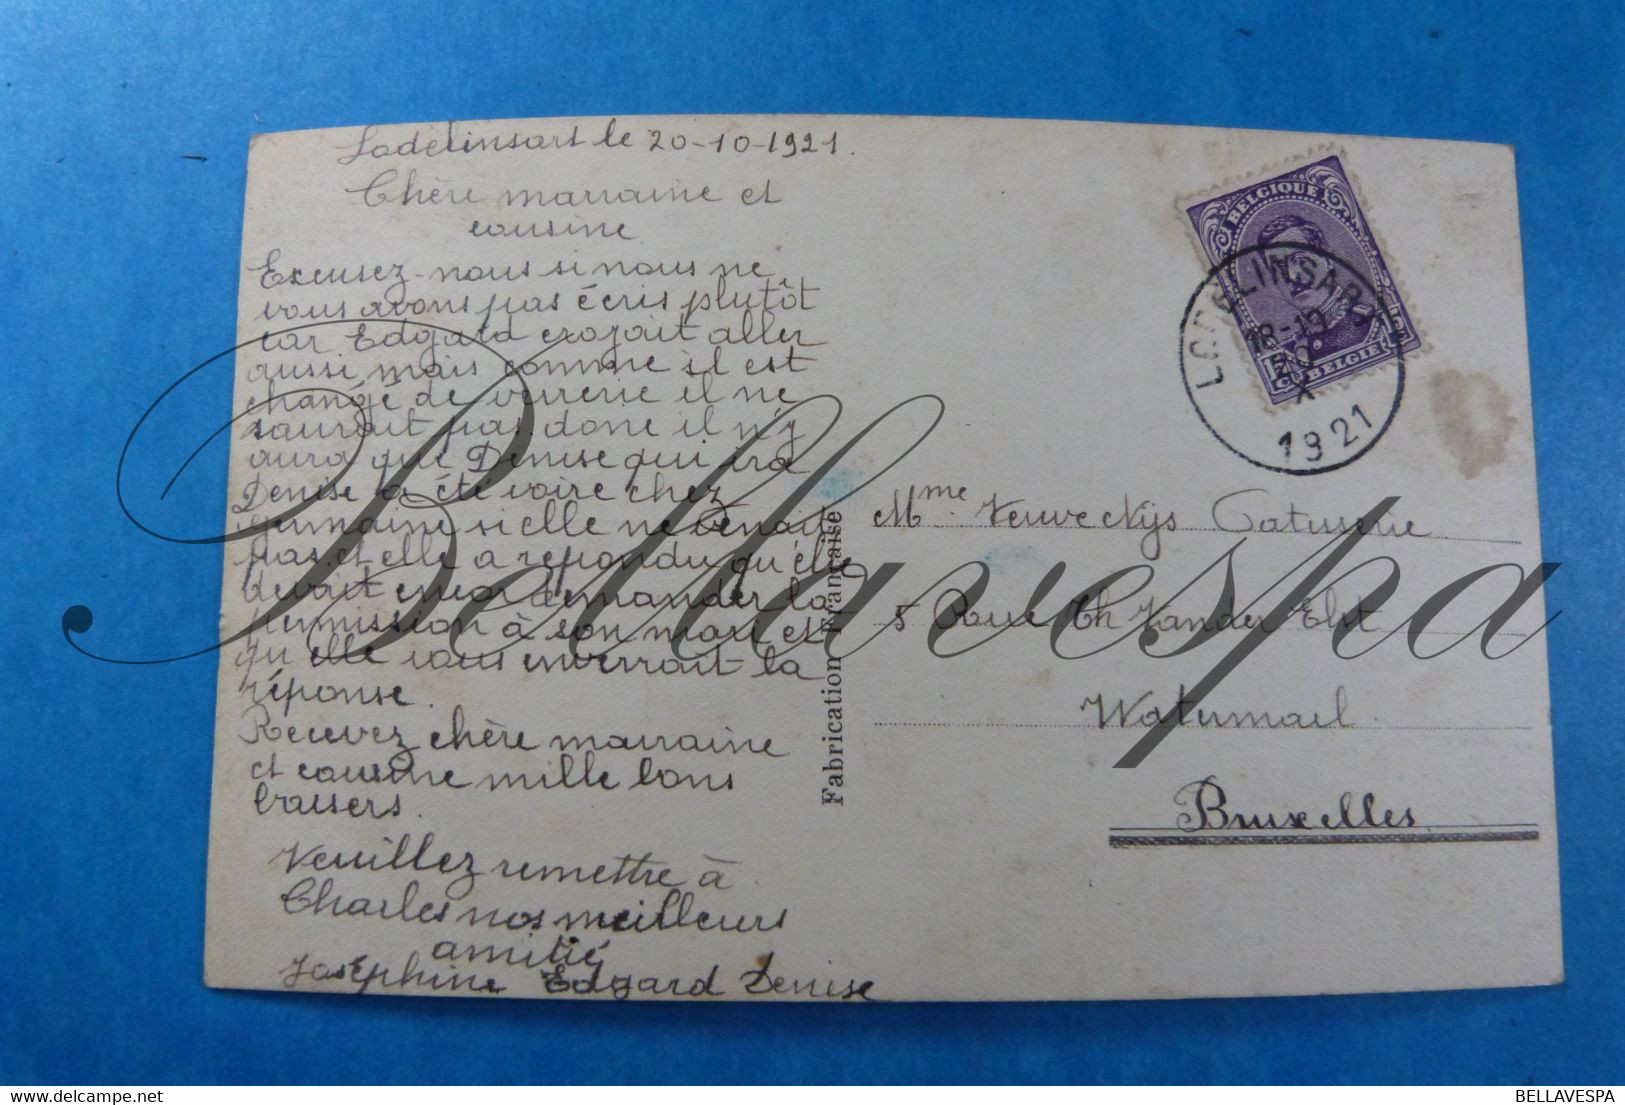 Lodelinsart le 20-10-1921.
Chère marraine et
cousine
Excusez-nous si nous ne
vous avons pas écris plutôt
car Edgard croyait aller
aussi, mais comme s'il est
changé de verrerie il ne
saurait pas donc il n'y
aura que Denise qui ira
Denise a été voire chez
germaine si elle ne venait
pas et elle a repondu qu'elle
devait encor demander la
permission à son mari et
qu'elle vous enverrait la
réponse.
Recevez chère marraine
et cousine mille bons
baisers.
Veuillez remettre à
Charles nos meilleurs
amitié
Joséphine Edgard Denise
Fabrication Française
BELGIQUE
15 C. BELGIE 15 C.
LODELINSART
18-19
20
X
1921
Mme Veuve Nys
5 Rue Th Vander Elst
Watermael
Bruxelles
Bellavespa
BELLAVESPA